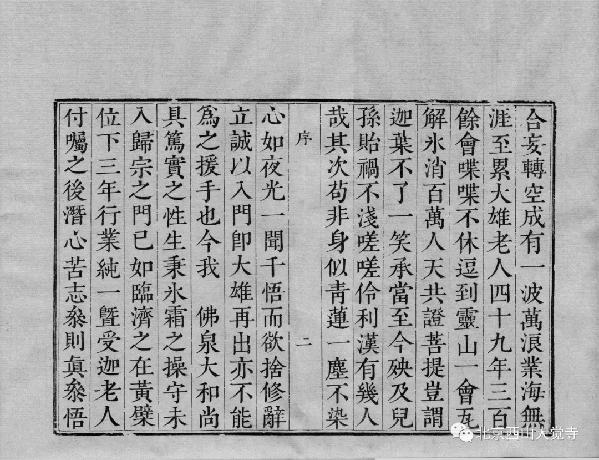 合妄轉空成有一波萬浪業海無
涯至累大雄老人四十九年三百
餘會喋喋不休逗到靈山一會瓦
解氷消百萬人天共證菩提豈謂
迦葉不了一笑承當至今殃及兒
孫貽禍不淺嗟嗟伶利漢有幾人
哉其次苟非身似靑蓮一塵不染
序
二
心如夜光一聞千悟而欲捨修辭
立誠以入門卽大雄再出亦不能
爲之援手也今我 佛泉大和尚
具篤實之性生秉氷霜之操守未
入歸宗之門已如臨濟之在黃檗
位下三年行業純一曁受迦老人
付囑之後潛心苦志叅則眞叅悟
北京西山大觉寺